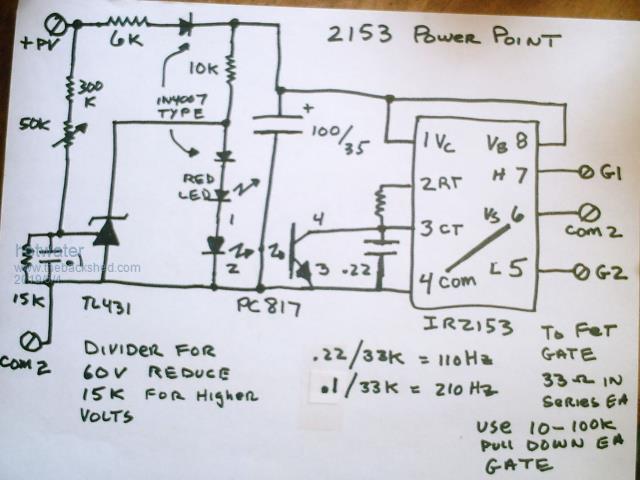 2153 POWER POINT
+PV
6K
10K
300
K
50K
1N4007
TYPE
+
100/35
RED
LED
1
2
4
3
.22
1 VC
VB 8
2 RT
H 7
3 CT
VS 6
4 COM
L 5
G1
COM 2
G2
hotwater
www.thebackshed.com
.1
15K
TL431
PC817
IR2153
COM 2
DIVIDER FOR
60V REDUCE
15K FOR HIGHER
VOLTS
.22/33K = 110Hz
.1/33K = 210Hz
TO FET
GATE
33Ω IN
SERIES EA
USE 10-100K
PULL DOWN EA
GATE